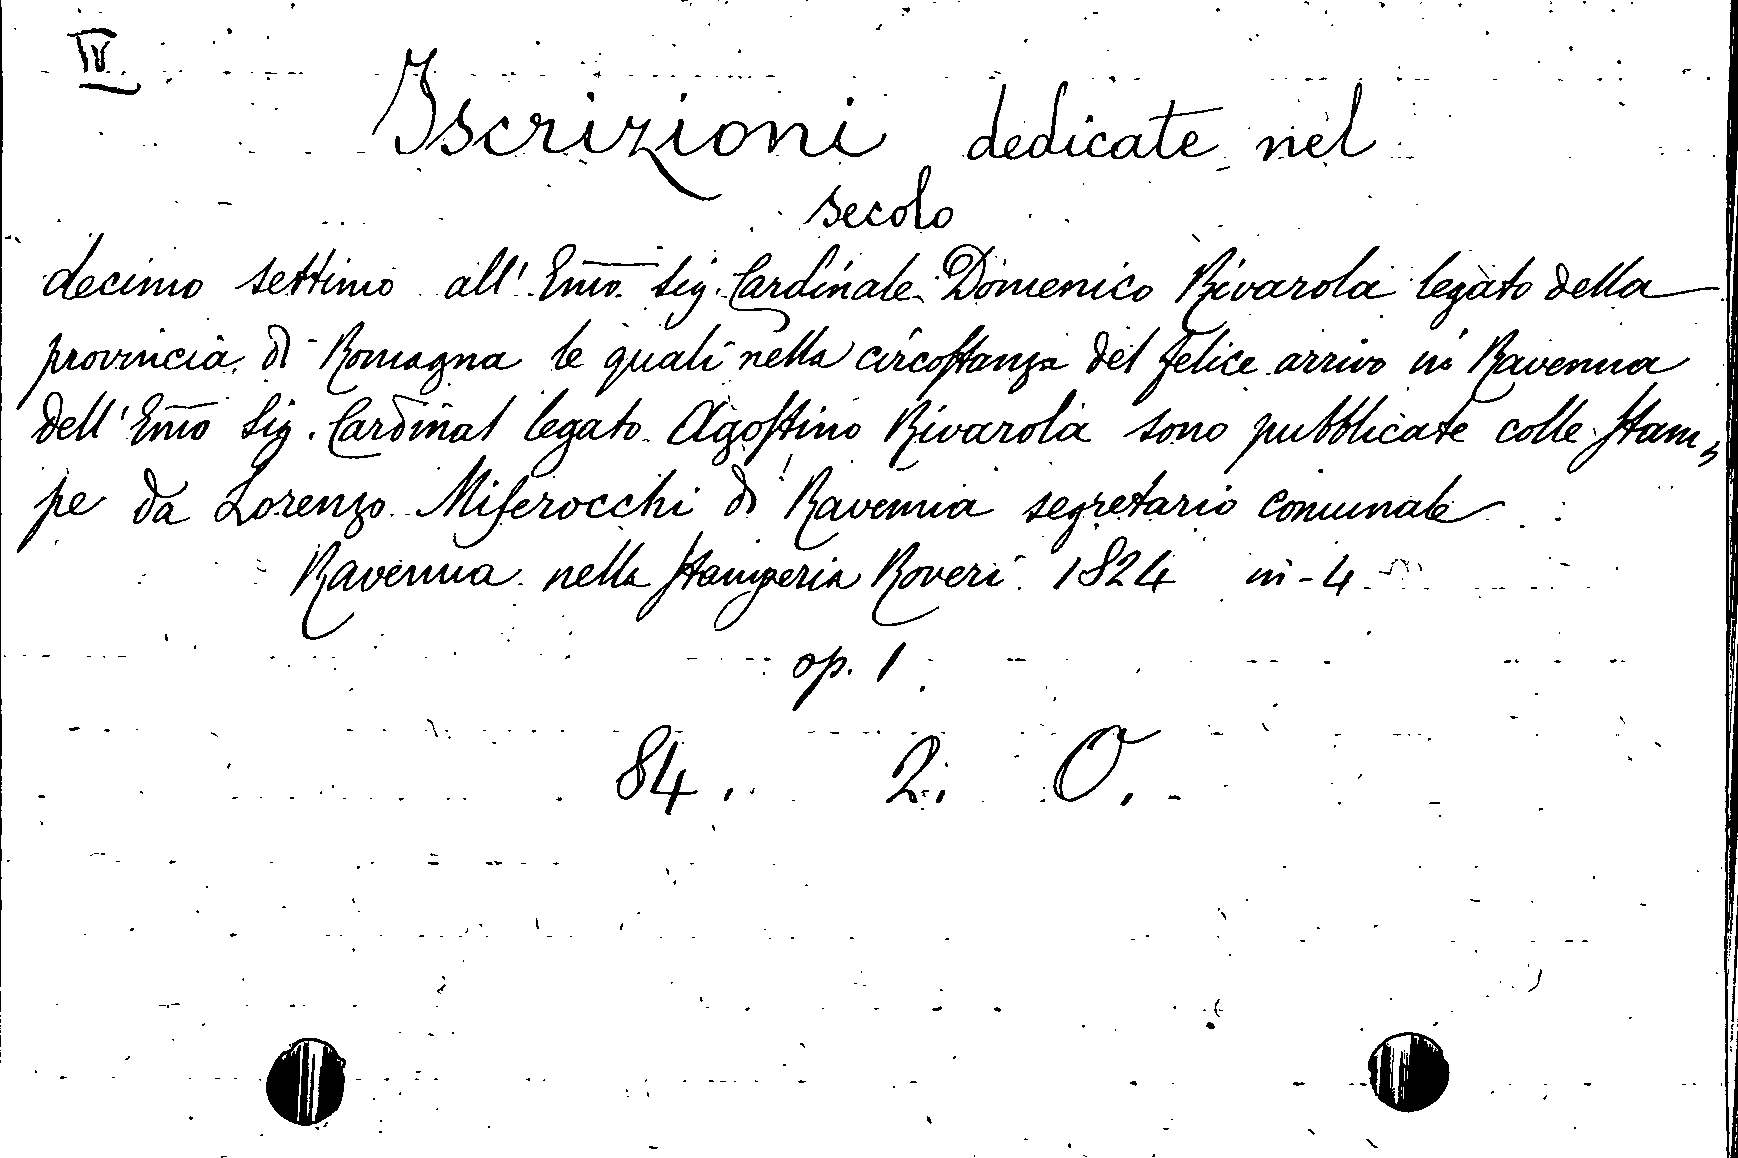 IV
Iscrizioni dedicate nel
secolo
decimo settimo all' Emo. Sig. Cardinale Domenico Rivarola legato della
provincia di Romagna le quali nella circostanza del felice arrivo in Ravenna
dell' Emo Sig. Cardinal legato Agostino Rivarola sono pubblicate colle stam,
pe da Lorenzo Miserocchi di Ravenna segretario comunale
Ravenna nella stamperia Roveri 1824 in-4
op. 1
84. 2. O.